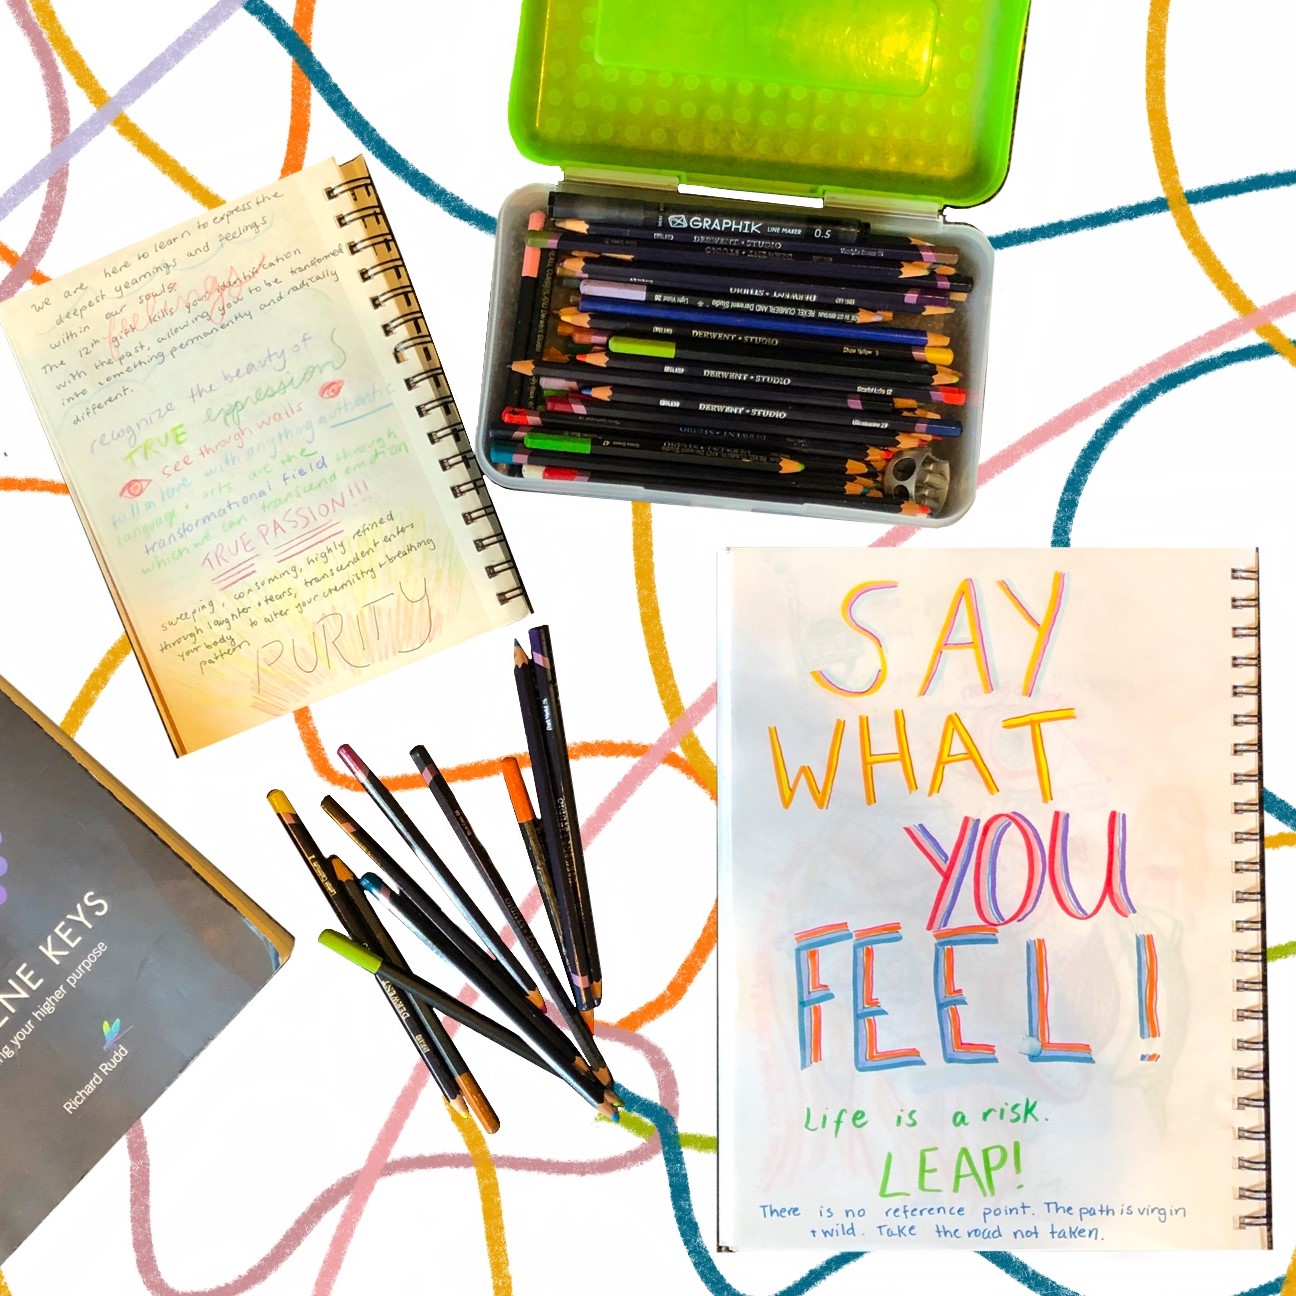 we are here to learn to express the
deepest yearnings and feelings
within our souls.
feelings
The 12th gift kills your identification
with the past, allowing you to be transformed
into something permanently and radically
different.
recognize the beauty of
TRUE expression
see through walls
fall in love with anything authentic
language, arts are the through
transformational field emotion
which we can transcend
TRUE PASSION!!!
sweeping, consuming, highly refined
through laughter + tears, transcendent enters
your body to alter your chemistry + breathing
pattern
PURITY
GRAPHIK LINE MAKER 0.5
DERWENT STUDIO
DERWENT STUDIO
DERWENT STUDIO
REXEL CUMBERLAND Derwent Studio Light Violet 26
DERWENT STUDIO
DERWENT STUDIO
DERWENT STUDIO
47
DERWENT
ENE KEYS
ng your higher purpose
Richard Rudd
SAY
WHAT
YOU
FEEL!
Life is a risk.
LEAP!
There is no reference point. The path is virgin
+ wild. Take the road not taken.